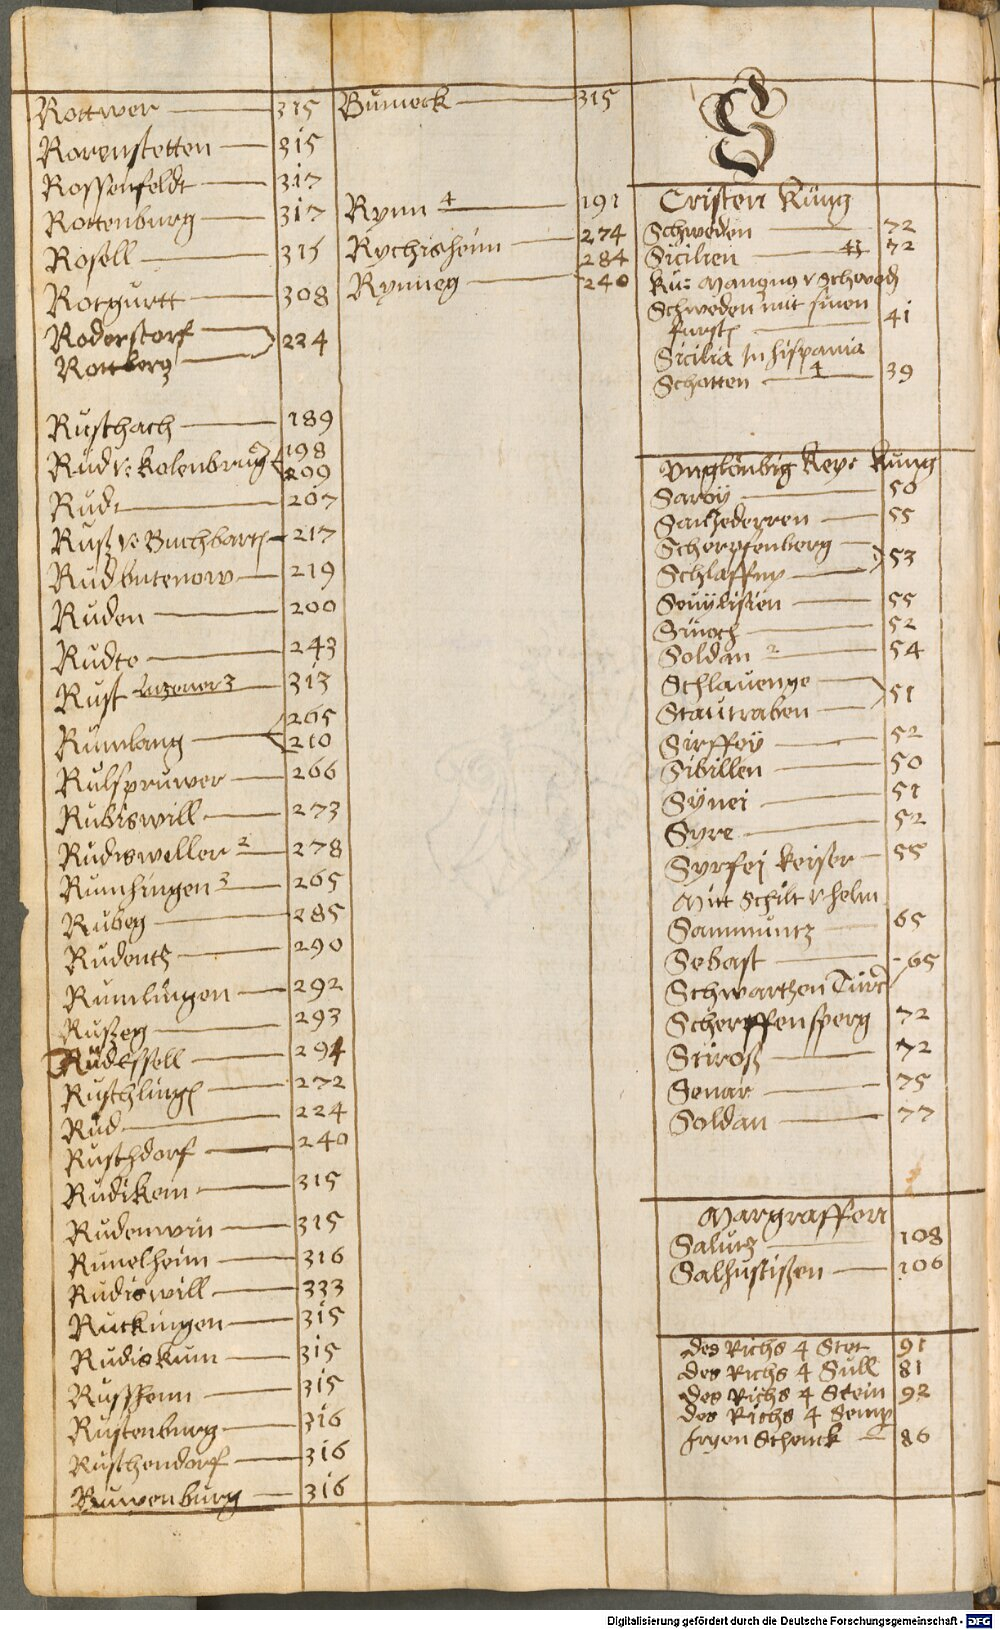 Rottwer 315
Rorenstetten 315
Rossenfeldt 317
Rottenburg 317
Rosell 315
Rotgurtt 308
Roderstorf
Rottberg 224
Ruschach 189
Rud vo Kolenbrug 198 209
Rudt 207
Rusz vo Buchbart 217
Rud butenow 219
Ruden 200
Rudto 243
Rust 313
Rumlang 265 210
Rulspruwer 266
Rubiswill 273
Rudisweller 2 278
Rumhingen 3 265
Rubeg 285
Rudentz 290
Rumlingen 292
Ruszeg 293
Rüdessell 294
Ruschling 272
Rüd 224
Ruschdorf 240
Rudikem 315
Rudenwin 315
Runelheim 316
Rudiswill 333
Ruckingen 315
Rudiskum 315
Russhenn 315
Rustenburg 316
Ruschendorf 316
Ruwenburg 316
Bumeck 315
Rynn 4 191
Rychisheim 274 284
Rynneg 240
S
Cristen Küng
Schweden 72
Sicilien 41 72
Schweden mit sinen
fürst 41
Sicilia In hispania
Schotten 4 39
Unglöubig Key: Kung
Saroÿ 50
Sanzederren 55
Scherpfenberg
Schlaffny 53
Seuÿlisien 55
Sinoch 52
Soldan 2 54
Schlauenye
Stautraben 51
Sirffoÿ 52
Sibillen 50
Sÿnei 51
Syre 52
Syrfei keiser 55
Mitt Schilt v helm
Sammuntz 65
Sebast 65
Schwartzen Türck
Scherpffensperg 72
Stirosz 72
Senar 75
Soldan 77
Margraffen
Salutz 108
Salhustiszen 106
des Richs 4 Stet 91
des Richs 4 Sull 81
des Richs 4 Stein 92
des Richs 4 Semp
fryen Schenck 86
Digitalisierung gefördert durch die Deutsche Forschungsgemeinschaft - DFG